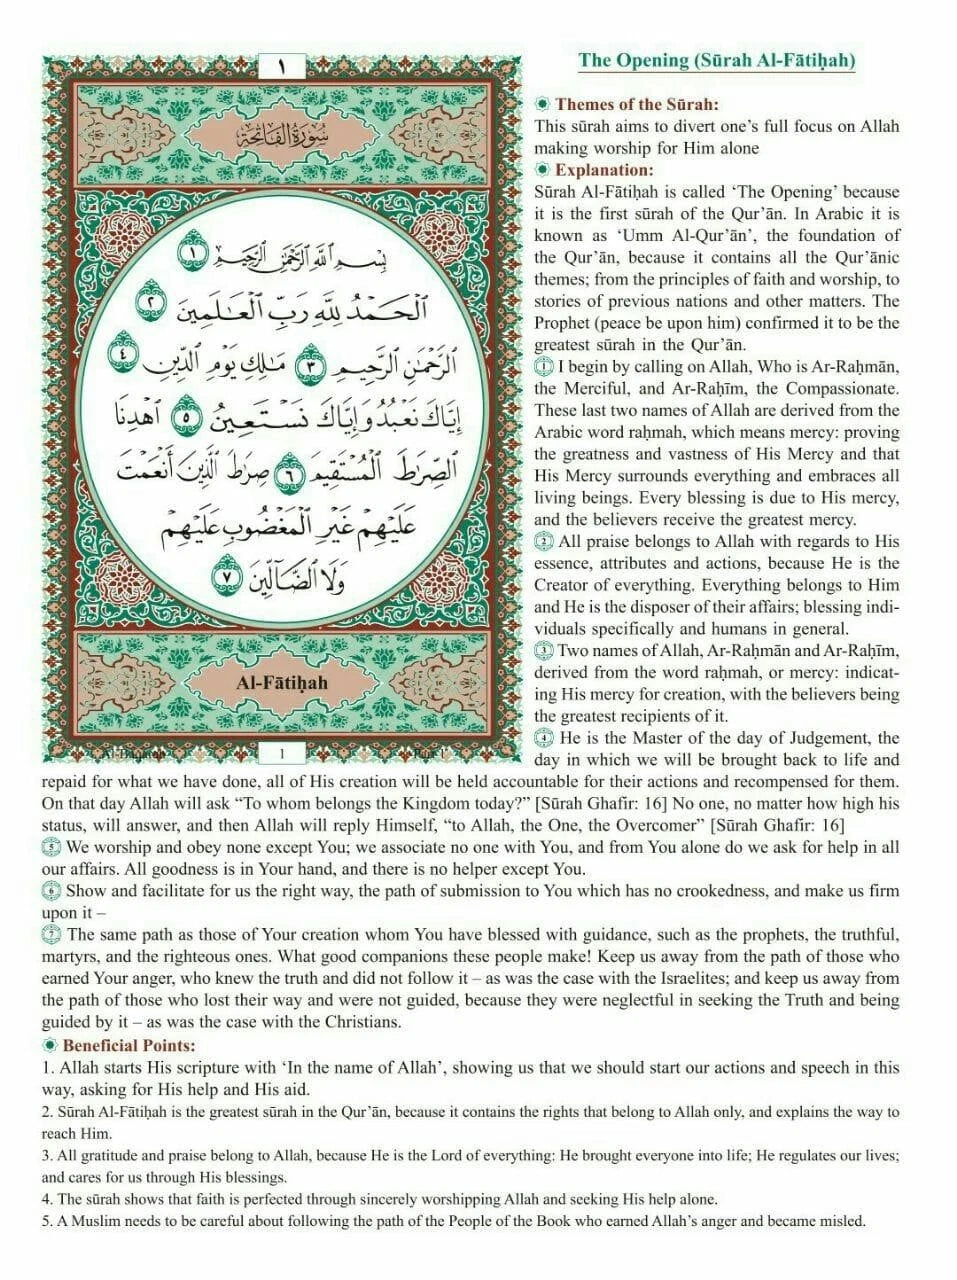 ١
سُورَةُ الفَاتِحَةِ
بِسْمِ اللَّهِ الرَّحْمَٰنِ الرَّحِيمِ ١
الْحَمْدُ لِلَّهِ رَبِّ الْعَالَمِينَ ٢
الرَّحْمَٰنِ الرَّحِيمِ ٣ مَالِكِ يَوْمِ الدِّينِ ٤
إِيَّاكَ نَعْبُدُ وَإِيَّاكَ نَسْتَعِينُ ٥ اهْدِنَا
الصِّرَاطَ الْمُسْتَقِيمَ ٦ صِرَاطَ الَّذِينَ أَنْعَمْتَ
عَلَيْهِمْ غَيْرِ الْمَغْضُوبِ عَلَيْهِمْ
وَلَا الضَّالِّينَ ٧
Al-Fātiḥah
1
The Opening (Sūrah Al-Fātiḥah)
Themes of the Sūrah:
This sūrah aims to divert one’s full focus on Allah
making worship for Him alone
Explanation:
Sūrah Al-Fātiḥah is called ‘The Opening’ because
it is the first sūrah of the Qur’ān. In Arabic it is
known as ‘Umm Al-Qur’ān’, the foundation of
the Qur’ān, because it contains all the Qur’ānic
themes; from the principles of faith and worship, to
stories of previous nations and other matters. The
Prophet (peace be upon him) confirmed it to be the
greatest sūrah in the Qur’ān.
1 I begin by calling on Allah, Who is Ar-Raḥmān,
the Merciful, and Ar-Raḥīm, the Compassionate.
These last two names of Allah are derived from the
Arabic word raḥmah, which means mercy: proving
the greatness and vastness of His Mercy and that
His Mercy surrounds everything and embraces all
living beings. Every blessing is due to His mercy,
and the believers receive the greatest mercy.
2 All praise belongs to Allah with regards to His
essence, attributes and actions, because He is the
Creator of everything. Everything belongs to Him
and He is the disposer of their affairs; blessing indi-
viduals specifically and humans in general.
3 Two names of Allah, Ar-Raḥmān and Ar-Raḥīm,
derived from the word raḥmah, or mercy: indicat-
ing His mercy for creation, with the believers being
the greatest recipients of it.
4 He is the Master of the day of Judgement, the
day in which we will be brought back to life and
repaid for what we have done, all of His creation will be held accountable for their actions and recompensed for them.
On that day Allah will ask “To whom belongs the Kingdom today?” [Sūrah Ghafir: 16] No one, no matter how high his
status, will answer, and then Allah will reply Himself, “to Allah, the One, the Overcomer” [Sūrah Ghafir: 16]
5 We worship and obey none except You; we associate no one with You, and from You alone do we ask for help in all
our affairs. All goodness is in Your hand, and there is no helper except You.
6 Show and facilitate for us the right way, the path of submission to You which has no crookedness, and make us firm
upon it –
7 The same path as those of Your creation whom You have blessed with guidance, such as the prophets, the truthful,
martyrs, and the righteous ones. What good companions these people make! Keep us away from the path of those who
earned Your anger, who knew the truth and did not follow it – as was the case with the Israelites; and keep us away from
the path of those who lost their way and were not guided, because they were neglectful in seeking the Truth and being
guided by it – as was the case with the Christians.
Beneficial Points:
1. Allah starts His scripture with ‘In the name of Allah’, showing us that we should start our actions and speech in this
way, asking for His help and His aid.
2. Sūrah Al-Fātiḥah is the greatest sūrah in the Qur’ān, because it contains the rights that belong to Allah only, and explains the way to
reach Him.
3. All gratitude and praise belong to Allah, because He is the Lord of everything: He brought everyone into life; He regulates our lives;
and cares for us through His blessings.
4. The sūrah shows that faith is perfected through sincerely worshipping Allah and seeking His help alone.
5. A Muslim needs to be careful about following the path of the People of the Book who earned Allah’s anger and became misled.